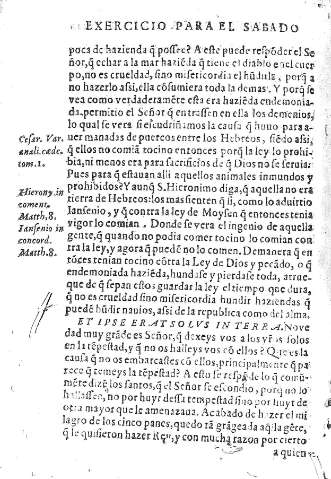 EXERCICIO PARA EL SABADO
poca de hazienda q̃ possee? A esto puede respõder el Se
ñor, q̃ echar a la mar haziẽda q̃ tiene el diablo en el cuer
po, no es crueldad, sino misericordia el hũdirla, porq̃ a
no hazerlo assi, ella cõsumiera toda la demas. Y porq̃ se
vea como verdaderamẽte esta era haziẽda endemonia-
da, permitio el Señor q̃ entrassen en ella los demonios,
lo qual se vera si escudriñamos la causa q̃ huuo para a-
uer manadas de puercos entre los Hebreos, siẽdo assi,
q̃ ellos no comiã tocino entonces porq̃ la ley lo prohi-
bia, ni menos era para sacrificios de q̃ Dios no se seruia:
Pues para q̃ estauan alli aquellos animales inmundos y
prohibidos? Y aunq̃ S. Hieronimo diga, q̃ aquella no era
tierra de Hebreos: los mas sienten q̃ si, como lo aduirtio
Iansenio, y q̃ contra la ley de Moysen q̃ entonces tenia
vigor lo comian. Donde se vera el ingenio de aquella
gente, q̃ quando no podia comer tocino lo comian con
tra la ley, y agora q̃ puedẽ no lo comen. De manera q̃ en
tõces tenian tocino cõtra la Ley de Dios y pecado, o q̃
endemoniada haziẽda, hundase y pierdase toda, a true-
que de q̃ sepan estos guardar la ley el tiempo que dura,
q̃ no es crueldad sino misericordia hundir haziendas q̃
puedẽ hũdir nauios, assi de la republica como del alma.
ET IPSE ERAT SOLVS IN TERRA. Noue
dad muy grãde es Señor, q̃ dexeys vos a los vr̃os solos
en la tẽpestad, y q̃ no os halleys vos cõ ellos? Que es la
causa q̃ no os embarcastes cõ ellos, principalmente q̃ pa
rece q̃ temeys la tẽpestad? A esto se respõde lo q̃ comũ-
mẽte dizẽ los santos, q̃ el Señor se escondio, porq̃ no lo
hallassen, no por huyr dessa tempestad sino por huyr de
otra mayor que le amenazaua. Acabado de hazer el mi
lagro de los cinco panes, quedo tã grãgeada aq̃lla gẽte,
q̃ le quisieron hazer Rey, y con mucha razon por cierto
a quien
Cesar. Var.
anali. ca de.
tom. 1.
Hierony. in
coment.
Matth. 8.
Iansenio in
concord.
Matth. 8.